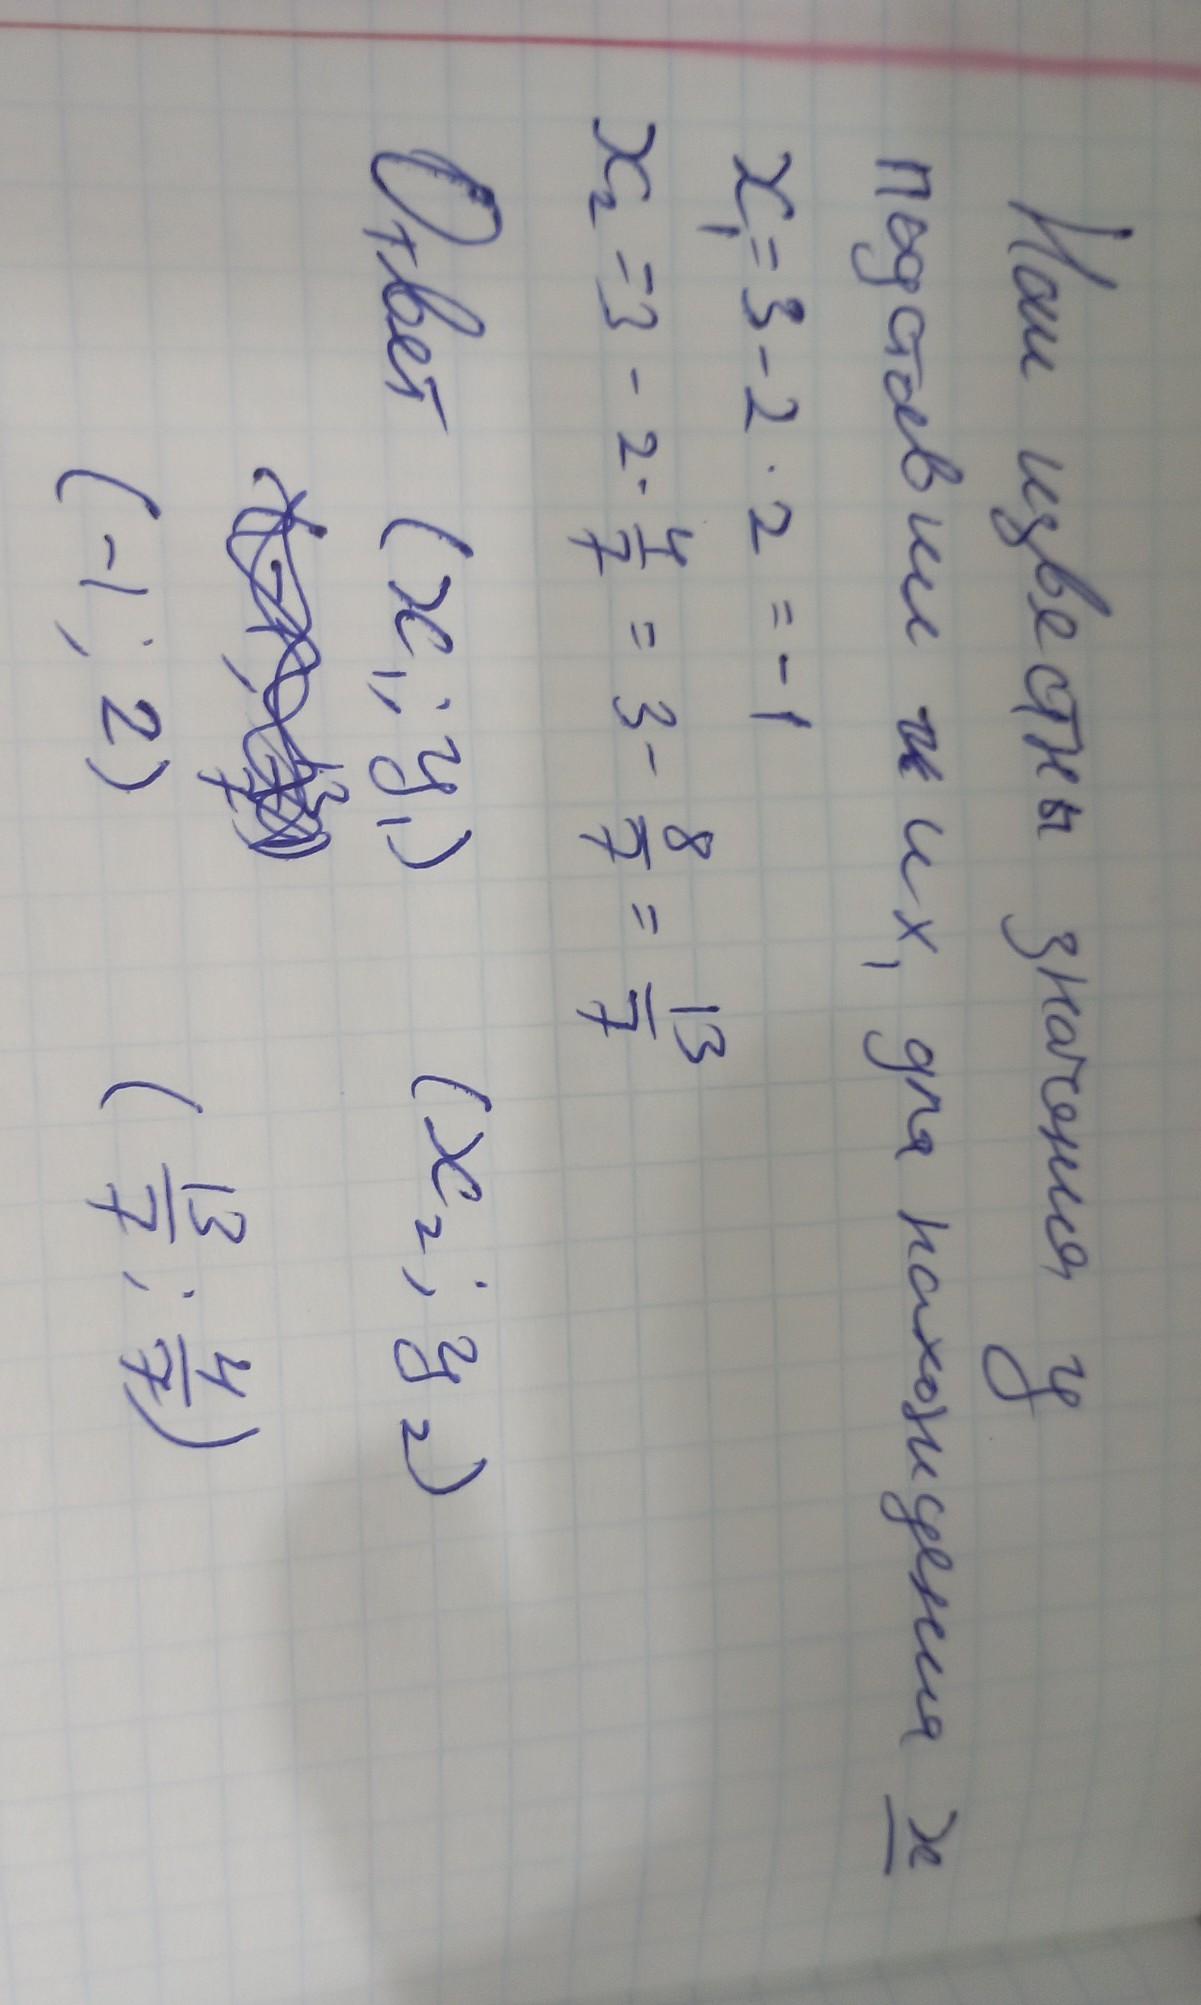 Нам известны значения y
подставим их, для нахождения x
x₁ = 3 - 2 · 2 = -1
x₂ = 3 - 2 · 4/7 = 3 - 8/7 = 13/7
Ответ (x₁; y₁) (x₂; y₂)
(-1; 2) (13/7; 4/7)